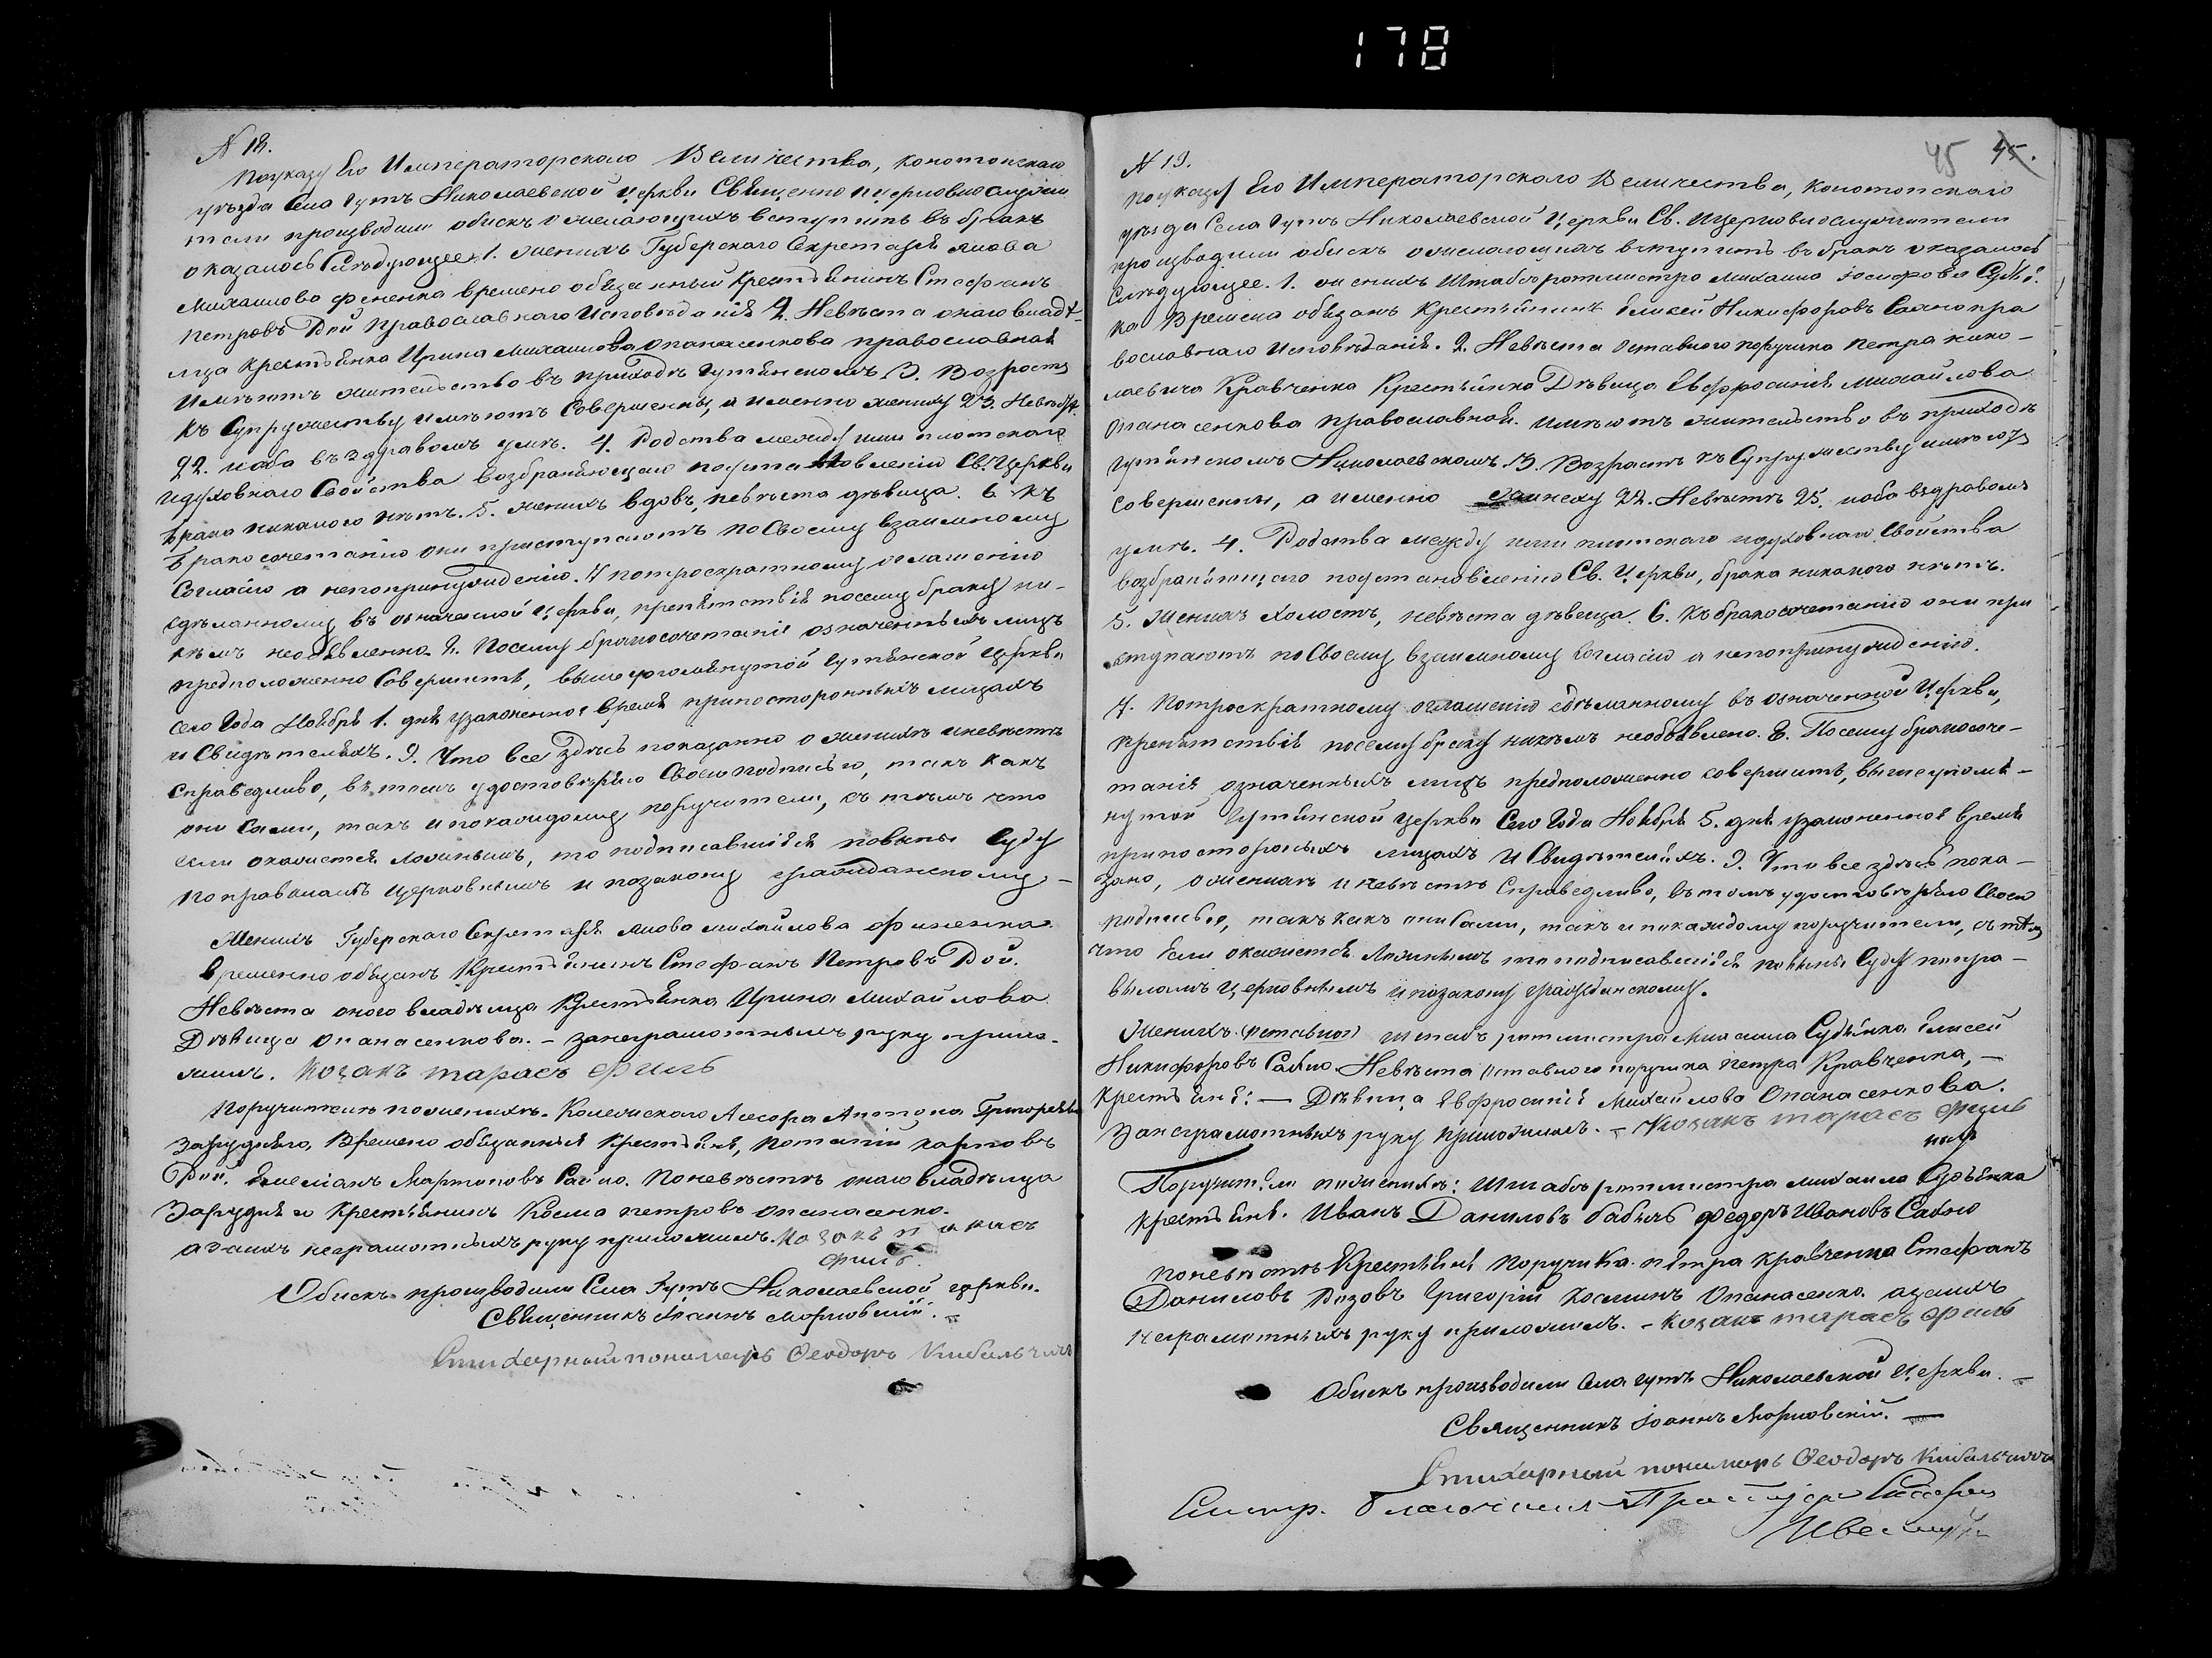 178
N 18.
По указу Его Императорскаго Величества, Конотопскаго
уѣзда Села Гутъ Николаевской церкви Священно и церковнослужи
тели производили обискъ о желающихъ вступить въ бракъ
оказалось Слѣдующее: 1. женихъ Губерскаго Секретаря Якова
Михаилова Фененка времено обязанный Крестьянинъ Стефанъ
Петровъ Дой Православнаго Исповѣданія 2. Невѣста онаго владѣ-
лца Крестьянка Ирина Михаилова Опанасенкова православная
Имѣютъ жительство въ приходѣ Гутянскомъ 3. Возростъ
Къ Супружеству имѣютъ Совершенны, а именно жениху 23. Невѣстѣ
22. и оба въ здравомъ умѣ. 4. Родства между ими плотскаго
и духовнаго Свойства возбраняющаго по установленію Св. Церкви
брака никакого нѣтъ. 5. женихъ вдовъ, невѣста дѣвица. 6. Къ
бракосочетанію они приступаютъ по Своему взаимному
Согласію а не по принужденію. 7 по троекратному оглашенію
сдѣланному въ означеной церкви, препятствія по сему браку ни-
кѣмъ необявленно. 8. Посему бракосочетаніе означенныхъ лицъ
предположенно Совершить, вышеупомянутой Гутянской Церкви
сего Года Ноября 1. дня узаконенное время при постороннихъ лицахъ
и Свидѣтеляхъ. 9. Что все здѣсь показанно о женихѣ и невѣстѣ
Справедливо, въ томъ удостовѣряю Своею подписью, такъ какъ
они Сами, такъ и по каждому поручители, съ тѣмъ что
если окажется Ложнымъ, то подписавшіеся повины Суду
по правиламъ церковнымъ и по закону гражданскому –
Женихъ Губерскаго Секретаря Якова Михайлова Финенка
временно обязанъ Крестьянинъ Стефанъ Петровъ Дой.
Невѣста оного владѣлца Крестьянка Ирина Михайлова
Дѣвица Опанасенкова. – за неграмотнымъ руку прило-
жилъ. Козакъ тарасъ Филь
Поручители по женихѣ. Колежскаго Асесора Антона Григорьева
Заруднего, Времено обязанныя Крестьяне, Потапій Карповъ
Дой. Емеліанъ Мартиновъ Сахно. По невѣстѣ онаго владѣлца
Зарудня го Крестьянинъ Косма Петровъ Опанасенко.
а за ихъ неграмотныхъ руку приложилъ. Козакъ тарасъ
Филь.
Обискъ производили Села Гутъ Николаевской церкви.
Священникъ Іоаннъ Марковскій. –
Стихарный пономарь Ѳеодоръ Кибальчичъ
45 45.
N 19.
По указу Его Императорскаго Величества, Конотопскаго
уѣзда Села Гутъ Николаевской Церкви Св. и Церковнослужители
производили обискъ о желающихъ вступить въ бракъ оказалось
Слѣдующее. 1. женихъ Штабсротмистра Михаила Іосифова Судіе
ка Времена обязанъ Крестьянинъ Елисей Никифоровъ Сахно пра
вославнаго Исповѣданія. 2. Невѣста Оставного поручика Петра Нико-
лаевича Кравченка Крестьянка Дѣвица Евфросинія Михайлова
Опанасенкова православной. имѣютъ жительство въ приходѣ
Гутянскомъ Николаевскомъ. 3. Возрастъ къ Супружеству имѣютъ
совершенны, а именно жениху 22. Невѣстѣ 25. и оба въ здравомъ
умѣ. 4. Родства между ними плотскаго и духовнаго Свойства
возбраняющаго по установленію Св. Церкви, брака никакого нѣтъ.
5. Женихъ холостъ, невѣста дѣвица. 6. Къ бракосочетанію они при
ступаютъ по Своему взаимному Согласію а не по принужденію.
7. По троекратному оглашенію сдѣланному въ означенной Церкви,
препятствія по сему браку никѣмъ необявлено. 8. Посему бракосоче-
танія означенныхъ лицъ предположенно совершить, вышеупомя-
нутой Гутянской церкви Сего Года Ноября 5. дня узаконенное время
при постороныхъ лицахъ и Свидѣтеляхъ. 9. Что все здѣсь пока-
зано, о женихѣ и невѣстѣ Справедливо, въ томъ удостовѣряю Своею
подписью, такъ какъ они Сами, такъ и по каждому поручители, съ тѣмъ
что Если окажется Ложнымъ то подписавшіеся повины Суду по пра-
виламъ церковнымъ и по закону гражданскому.
Женихъ. (оставной) штабъ ротмистра Михаила Судьенка Елисей
Никифоровъ Сахно. Невѣста Оставного поручика Петра Кравченка, –
Крестьяне: – Дѣвица Евфросинія Михайлова Опанасенкова.
За неграмотныхъ руку приложилъ. – Козакъ тарасъ Филь
Поручители по женихѣ: Штабъ ротмистра Михаила Судьенка
Крестьяне. Иванъ Даниловъ бабичь Федоръ Ивановъ Сахно
по невѣстѣ Крестьяне Поручика. Петра Кравченка Стефанъ
Даниловъ Вдзовъ Григорій Косминъ Опанасенко. а за ихъ
неграмотныхъ руку приложилъ. – Козакъ тарасъ Филь
Обискъ производили Села Гутъ Николаевской Церкви. –
Священникъ Іоаннъ Марковскій. –
Стихарный пономарь Ѳеодоръ Кибальчичъ